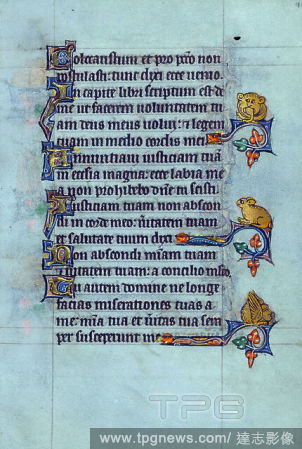 Holocaustum et pro pctō non
postulasti: tunc dixi ecce uenio.
In capite libri scriptum est de
me ut facerem uoluntatem tu
am deus meus uolui: et legem
tuam in medio cordis mei
Annuntiaui iusticiam tuā
in ecclīa magna: ecce labia me
a non prohibebo dn̄e tu scisti
Iusticiam tuam non abscon
di in corde meo: ueritatem tuam
et salutare tuum dixi
Non abscondi mīam tuam
et ueritatem tuam: a concilio
Tu autem domine ne longe
facias miserationes tuas a
me: mīa tua et ueritas tua sem
per susceperunt me
TPG
www.tpgnews.com/達志影像